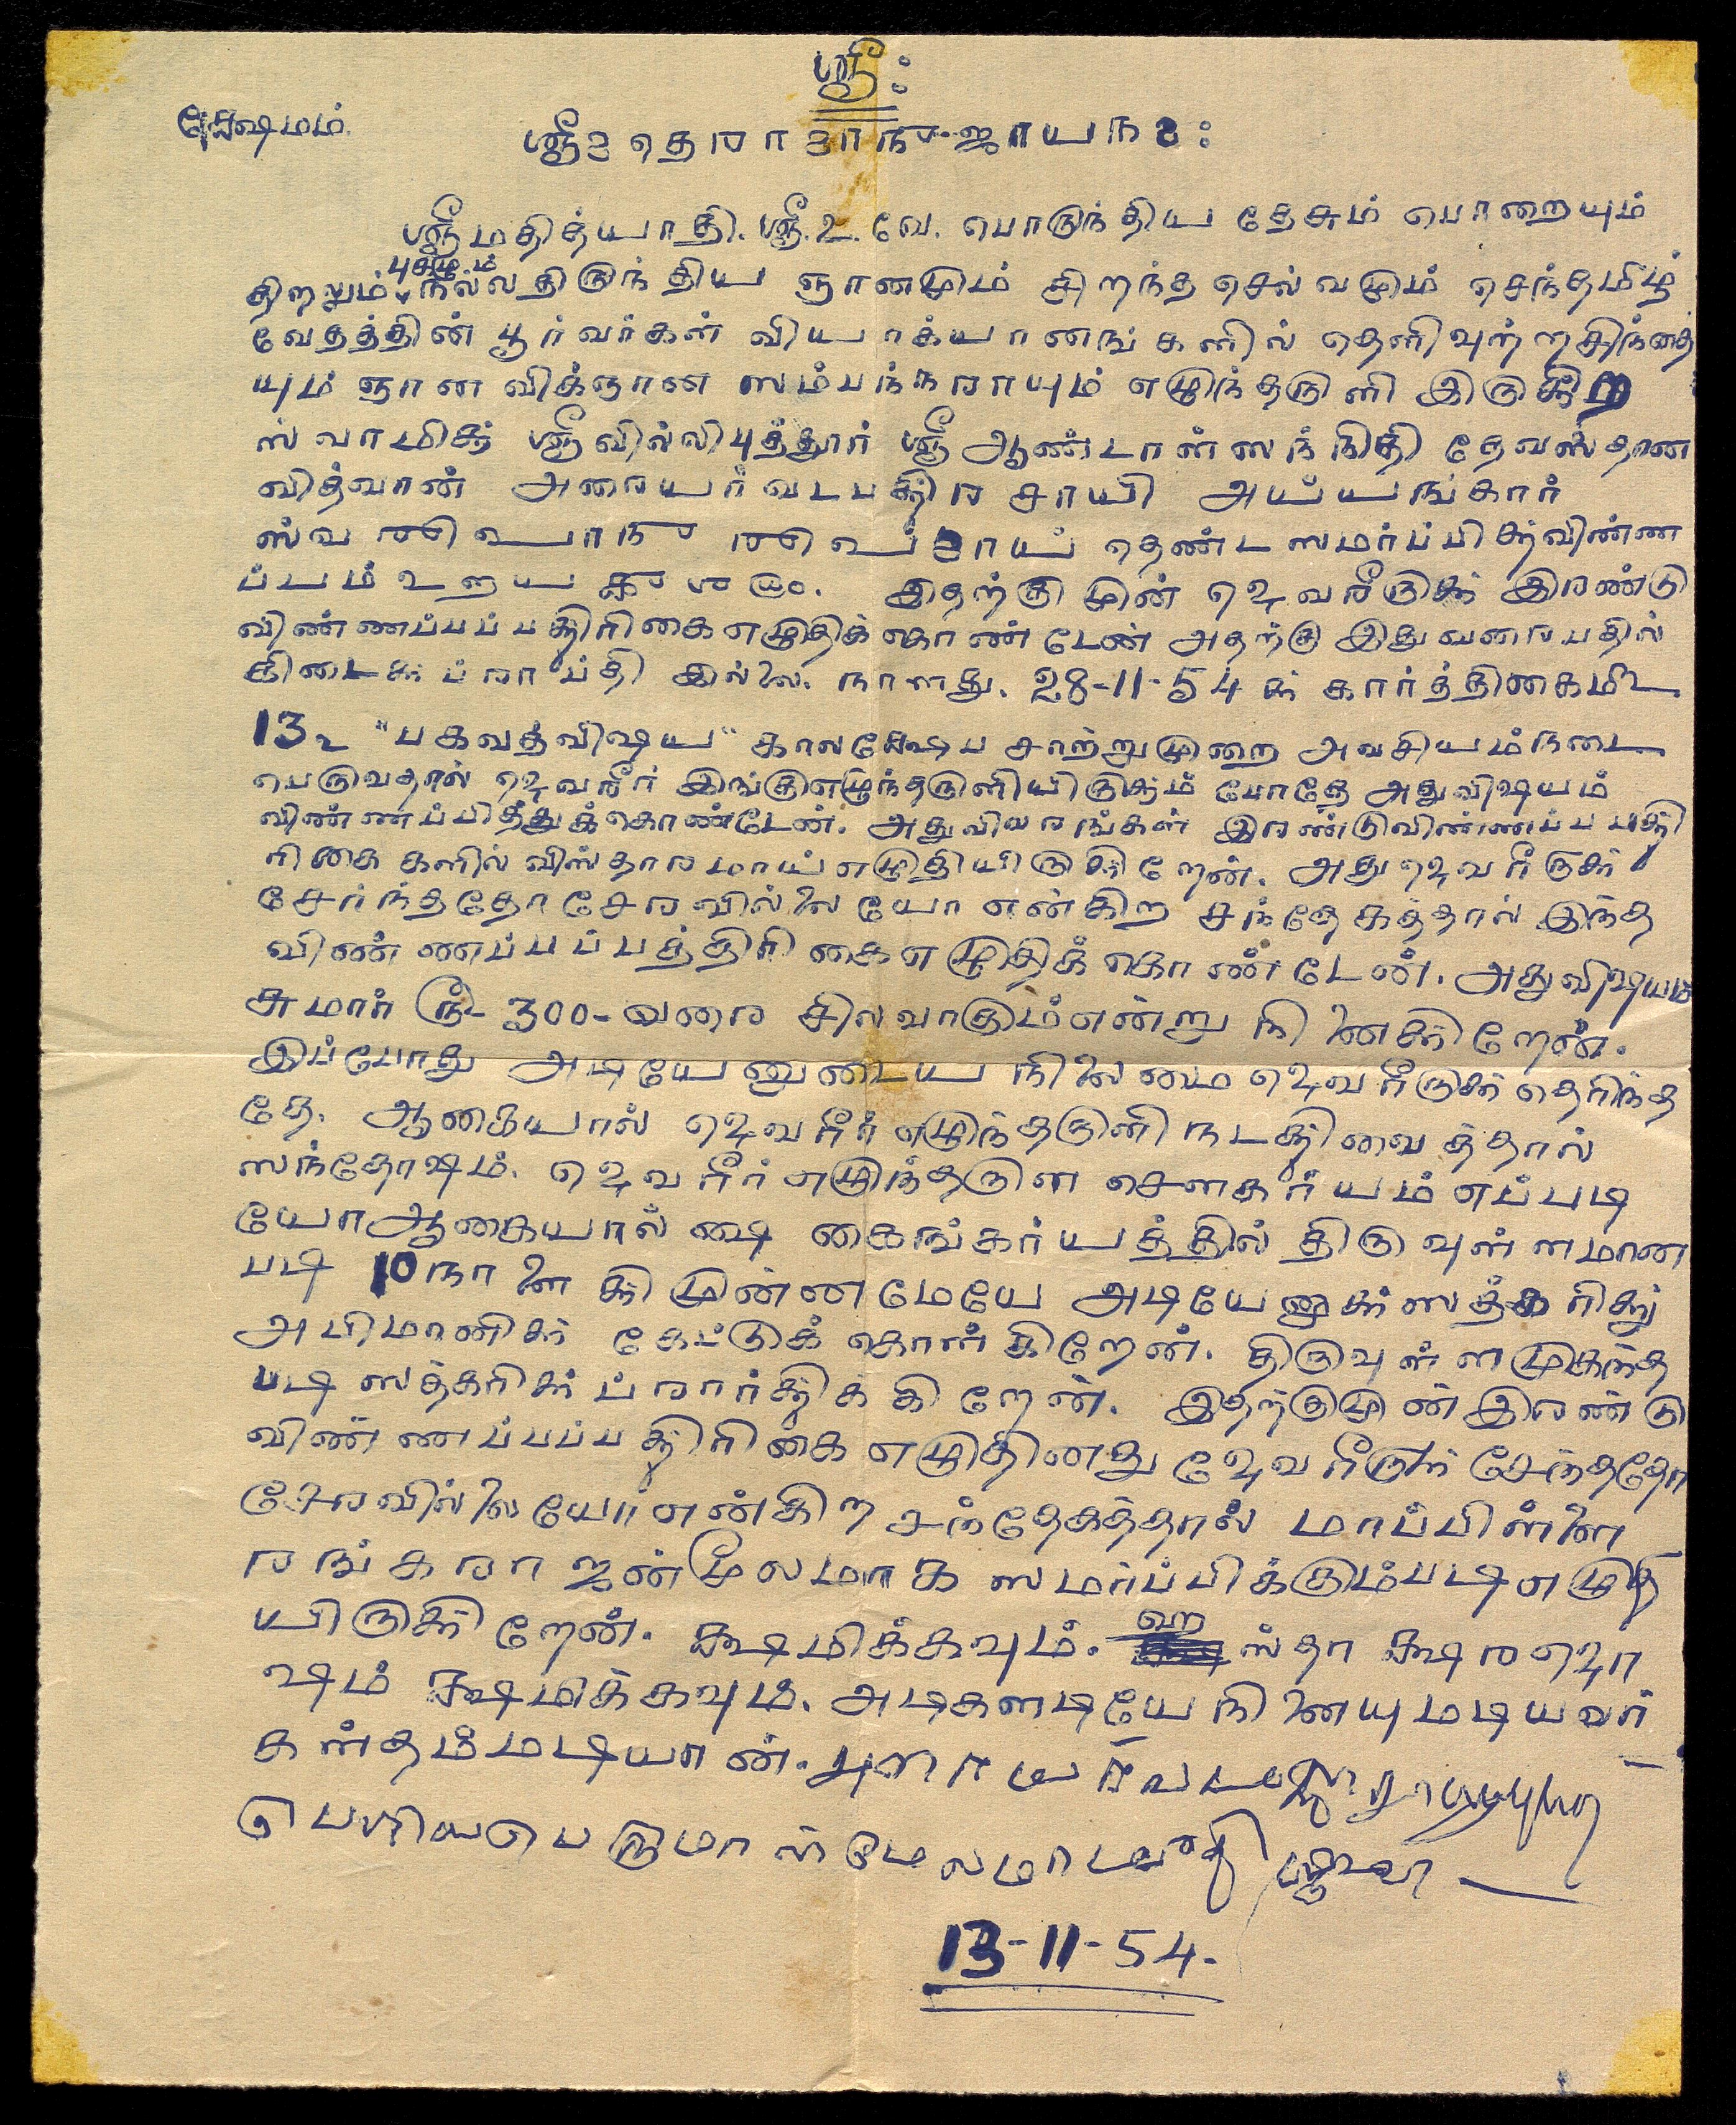 ஸ்ரீ:
க்ஷேமம்
ஸ்ரீமதெ ராமாநுஜாய நம:
ஸ்ரீமதித்யாதி. ஸ்ரீ.உ.வே. பொருந்திய தேசும் பொறையும்
திறலும் புகழும் நல்ல திருந்திய ஞானமும் சிறந்த செல்வமும் செந்தமிழ்
வேதத்தின் பூர்வர்கள் வியாக்யானங்களில் தெளிவுற்ற சிந்தை
யும் ஞான விக்ஞான ஸம்பந்நராயும் எழுந்தருளி இருக்கிற
ஸ்வாமிக்கு ஸ்ரீவில்லிபுத்தூர் ஸ்ரீ ஆண்டாள் ஸந்நிதி தேவஸ்தான
வித்வான் அரையர் வடபத்ர சாயி அய்யங்கார்
தெண்ட ஸமர்ப்பித்து விண்ண
ப்பம் உபய இதற்கு முன் தேவரீருக்கு இரண்டு
விண்ணப்பப் பத்திரிகை எழுதிக் கொண்டேன் அதற்கு இதுவரை பதில்
கிடைக்க ப்ராப்தி இல்லை. நாளது. 28-11-54 ந் கார்த்திகை மீ
13உ "பகவத் விஷய" காலக்ஷேப சாற்றுமுறை அவசியம் நடை
பெறுவதால் தேவரீர் இங்கு எழுந்தருளியிருக்கும் போதே அது விஷயம்
விண்ணப்பித்துக் கொண்டேன். அது விவரங்கள் இரண்டு விண்ணப்ப பத்தி
ரிகைகளில் விஸ்தாரமாய் எழுதியிருக்கிறேன். அது தேவரீருக்கு
சேர்ந்ததோ சேரவில்லையோ என்கிற சந்தேகத்தால் இந்த
விண்ணப்பப் பத்திரிகை எழுதிக் கொண்டேன். அது விஷயம்
சுமார் ரூ 300- வரை சிலவாகும் என்று நினைக்கிறேன்.
இப்போது அடியேனுடைய நிலைமை தேவரீருக்கு தெரிந்த
தே. ஆகையால் தேவரீர் எழுந்தருளி நடத்தி வைத்தால்
ஸந்தோஷம். தேவரீர் எழுந்தருள சௌகர்யம் எப்படி
யோ ஆகையால் ஷை கைங்கர்யத்தில் திருவுள்ளமான
படி 10 நாளைக்கு முன்னமேயே அடியேனுக்கு ஸத்கரித்து
அபிமானிக்க கேட்டுக் கொள்கிறேன். திருவுள்ளமுகந்த
படி ஸத்கரிக்க ப்ரார்த்திக்கிறேன். இதற்கு முன் இரண்டு
விண்ணப்பப் பத்திரிகை எழுதினது தேவரீருக்கு சேர்ந்ததோ
சேரவில்லையோ என்கிற சந்தேகத்தால் மாப்பிள்ளை
ரங்கராஜன் மூலமாக ஸமர்ப்பிக்கும்படி எழுதி
யிருக்கிறேன். க்ஷமிக்கவும். ஹஸ்தாக்ஷர தோ
ஷம் க்ஷமிக்கவும். அடிகளடியே நினையுமடியவர்
கள் தம்மடியான். அரையர் வடபத்ர
பெரியபெருமாள் மேலமாடவீதி ஸ்ரீவி
13-11-54.